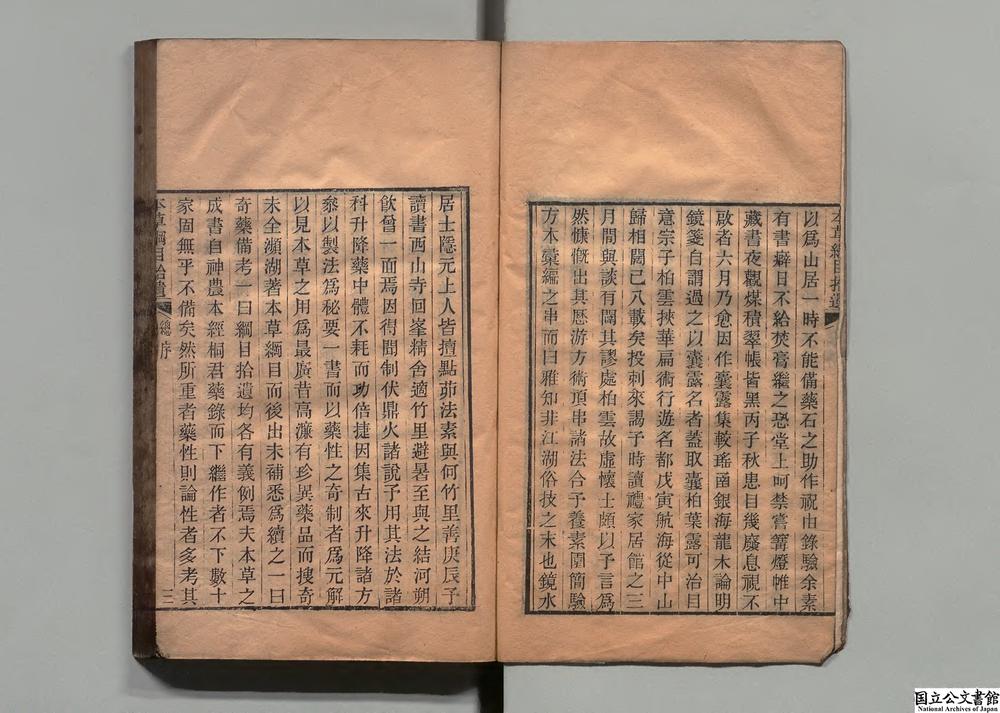 以爲山居一時不能備藥石之助作祝由錄驗余素
有書癖日不給焚膏繼之恐堂上呵禁嘗篝燈帷中
藏書夜觀煤積翠帳皆黑丙子秋患目幾廢息視不
啟者六月乃愈因作囊露集較瑤函銀海龍木論明
鏡箋自謂過之以囊露名者蓋取囊柏葉露可治目
意宗子柏雲挾華扁術行遊名都戊寅航海從中山
歸相闊已八載矣投刺來謁予時讀禮家居館之三
月間與談有闊其謬處柏雲故虛懷士頗以予言爲
然慷慨出其歷游方術頂串諸法合予養素園簡驗
方木彙編之串而曰雅知非江湖俗技之末也鏡水
本草綱目拾遺
居士隱元上人皆擅點茆法素與何竹里善庚辰予
讀書西山寺回峯精舍適竹里避暑至與之結河朔
飲曾一面焉因得聞制伏鼎火諸說予用其法於諸
科升降藥中體不耗而功倍捷因集古來升降諸方
叅以製法爲秘要一書而以藥性之奇制者爲元解
以見本草之用爲最廣昔高濂有珍異藥品而搜奇
未全瀕湖著本草綱目而後出未補悉爲續之一曰
奇藥備考一曰綱目拾遺均各有義例焉夫本草之
成書自神農本經桐君藥錄而下繼作者不下數十
家固無乎不備矣然所重者藥性則論性者多考其
本草綱目拾遺 總序 三
国立公文書館
National Archives of Japan